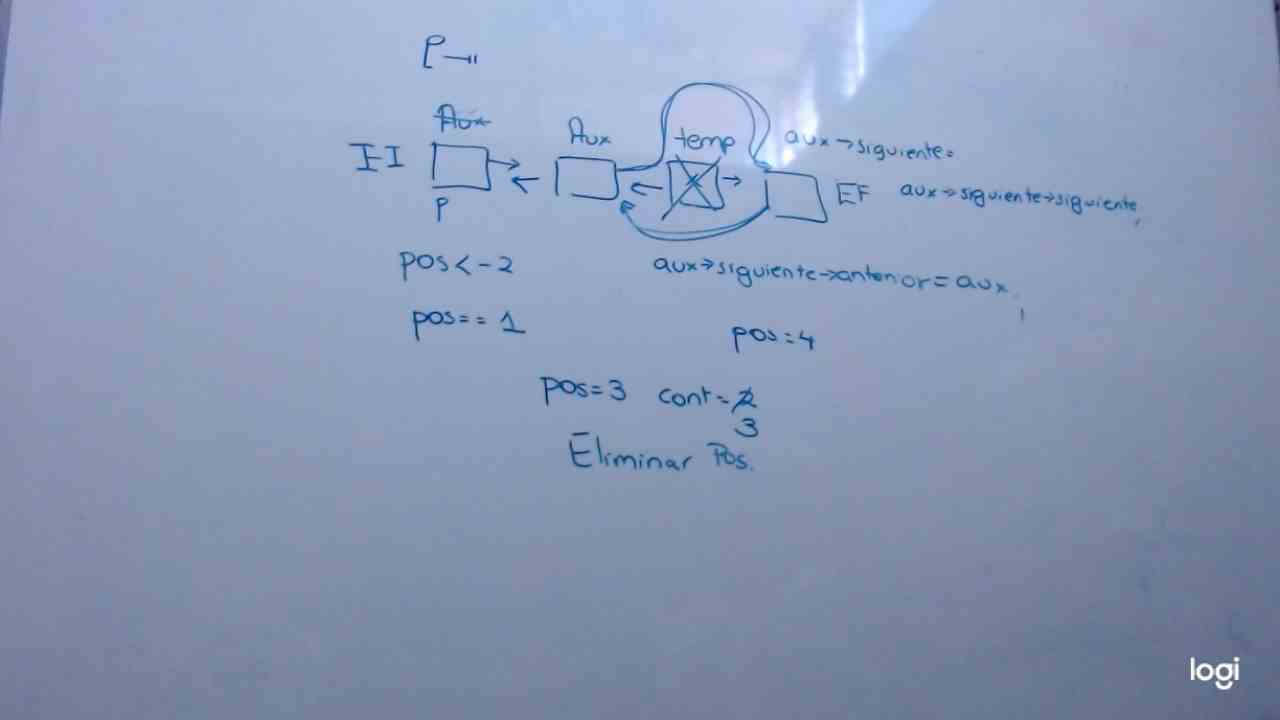 P
Aux
Aux
temp
aux→siguiente=
EI
EF
aux→siguiente→siguiente;
P
pos<-2
aux→siguiente→anterior=aux;
pos==1
pos=4
pos=3 cont=2
3
Eliminar Pos.
logi